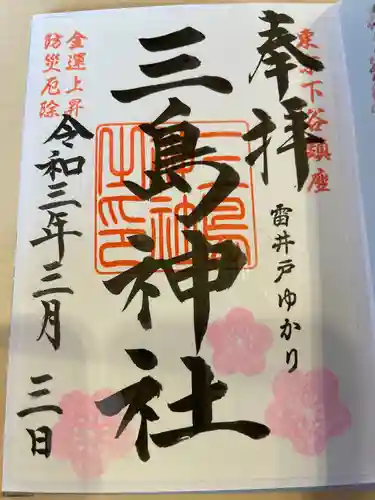 奉拝
下谷鎮座
雷井戸ゆかり
三島神社
三島神社之印
金運上昇
防災厄除
令和三年三月三日